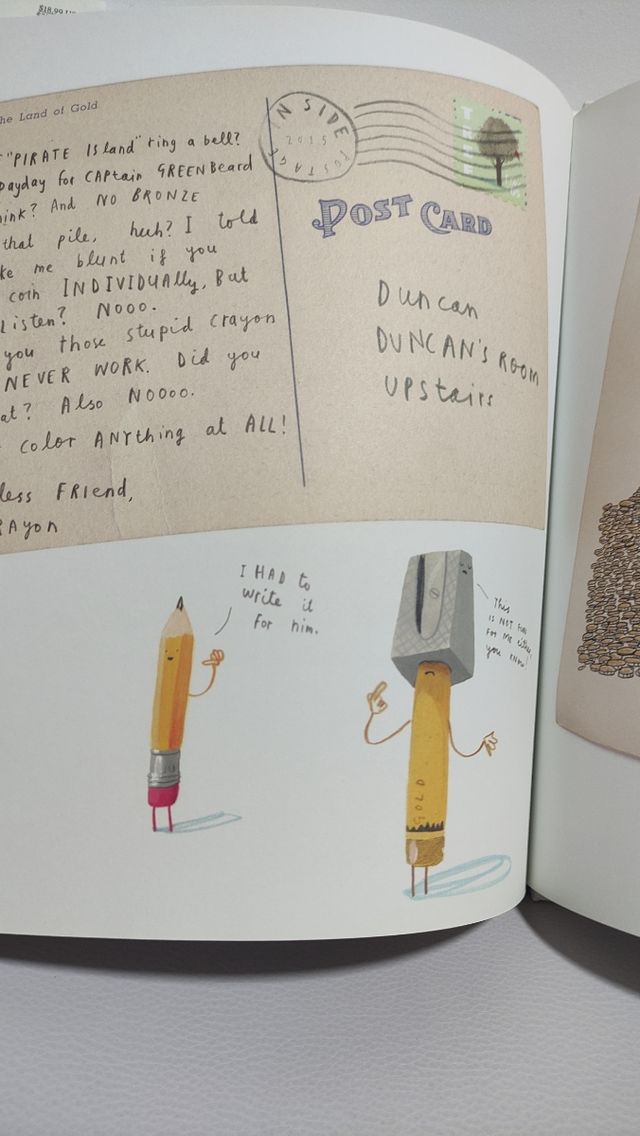 The Land of Gold
"PIRATE Island" ring a bell?
Payday for CAPtain GREENBeard
And NO BRONZE
that pile, huh? I told
me blunt if you
coin INDIVIDUAlly, But
Listen? NOOO.
you those stupid crayon
NEVER WORK. Did you
Also NOOOO.
color ANYthing at ALL!
FRIend,
INSIDE
2015
POSTAGE
TREE
POST CARD
Duncan
DUNCAN'S ROOM
UPstairs
I HAD to
write it
for him.
This
IS NOT FUN
FOR ME either,
you know!
GOLD